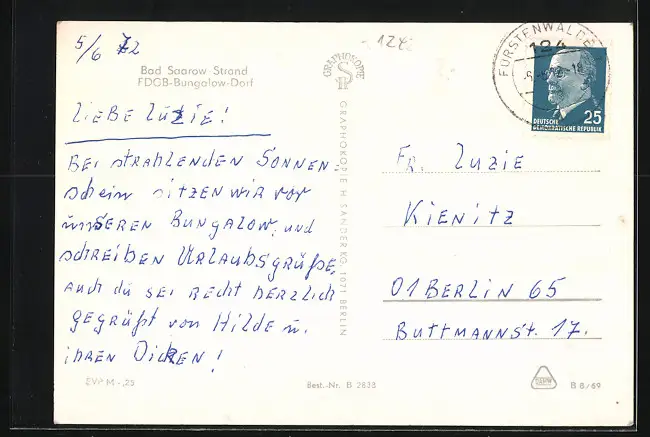 5/6 72
Bad Saarow-Strand
FDGB-Bungalow-Dorf
LIEBE LUZIE!
BEI STRAHLENDEN SONNEN-
schein SITZEN WIR vor
unSEREN BUNGALOW, und
schREIBEN URLAUBSGRÜßE,
AUCH du SEI RECHT HERZLICH
gEgRüßt von HILDE u.
iHREN DicKEN!
EVP M -,25
GRAPHOKOPIE
GRAPHOKOPIE H. SANDER KG, 1071 BERLIN
Best.-Nr. B 2838
FÜRSTENWALDE
124
DEUTSCHE
DEMOKRATISCHE REPUBLIK
25
FR. LUZIE
KIENITZ
01 BERLIN 65
BUTTMANNSt. 17.
B 8/69